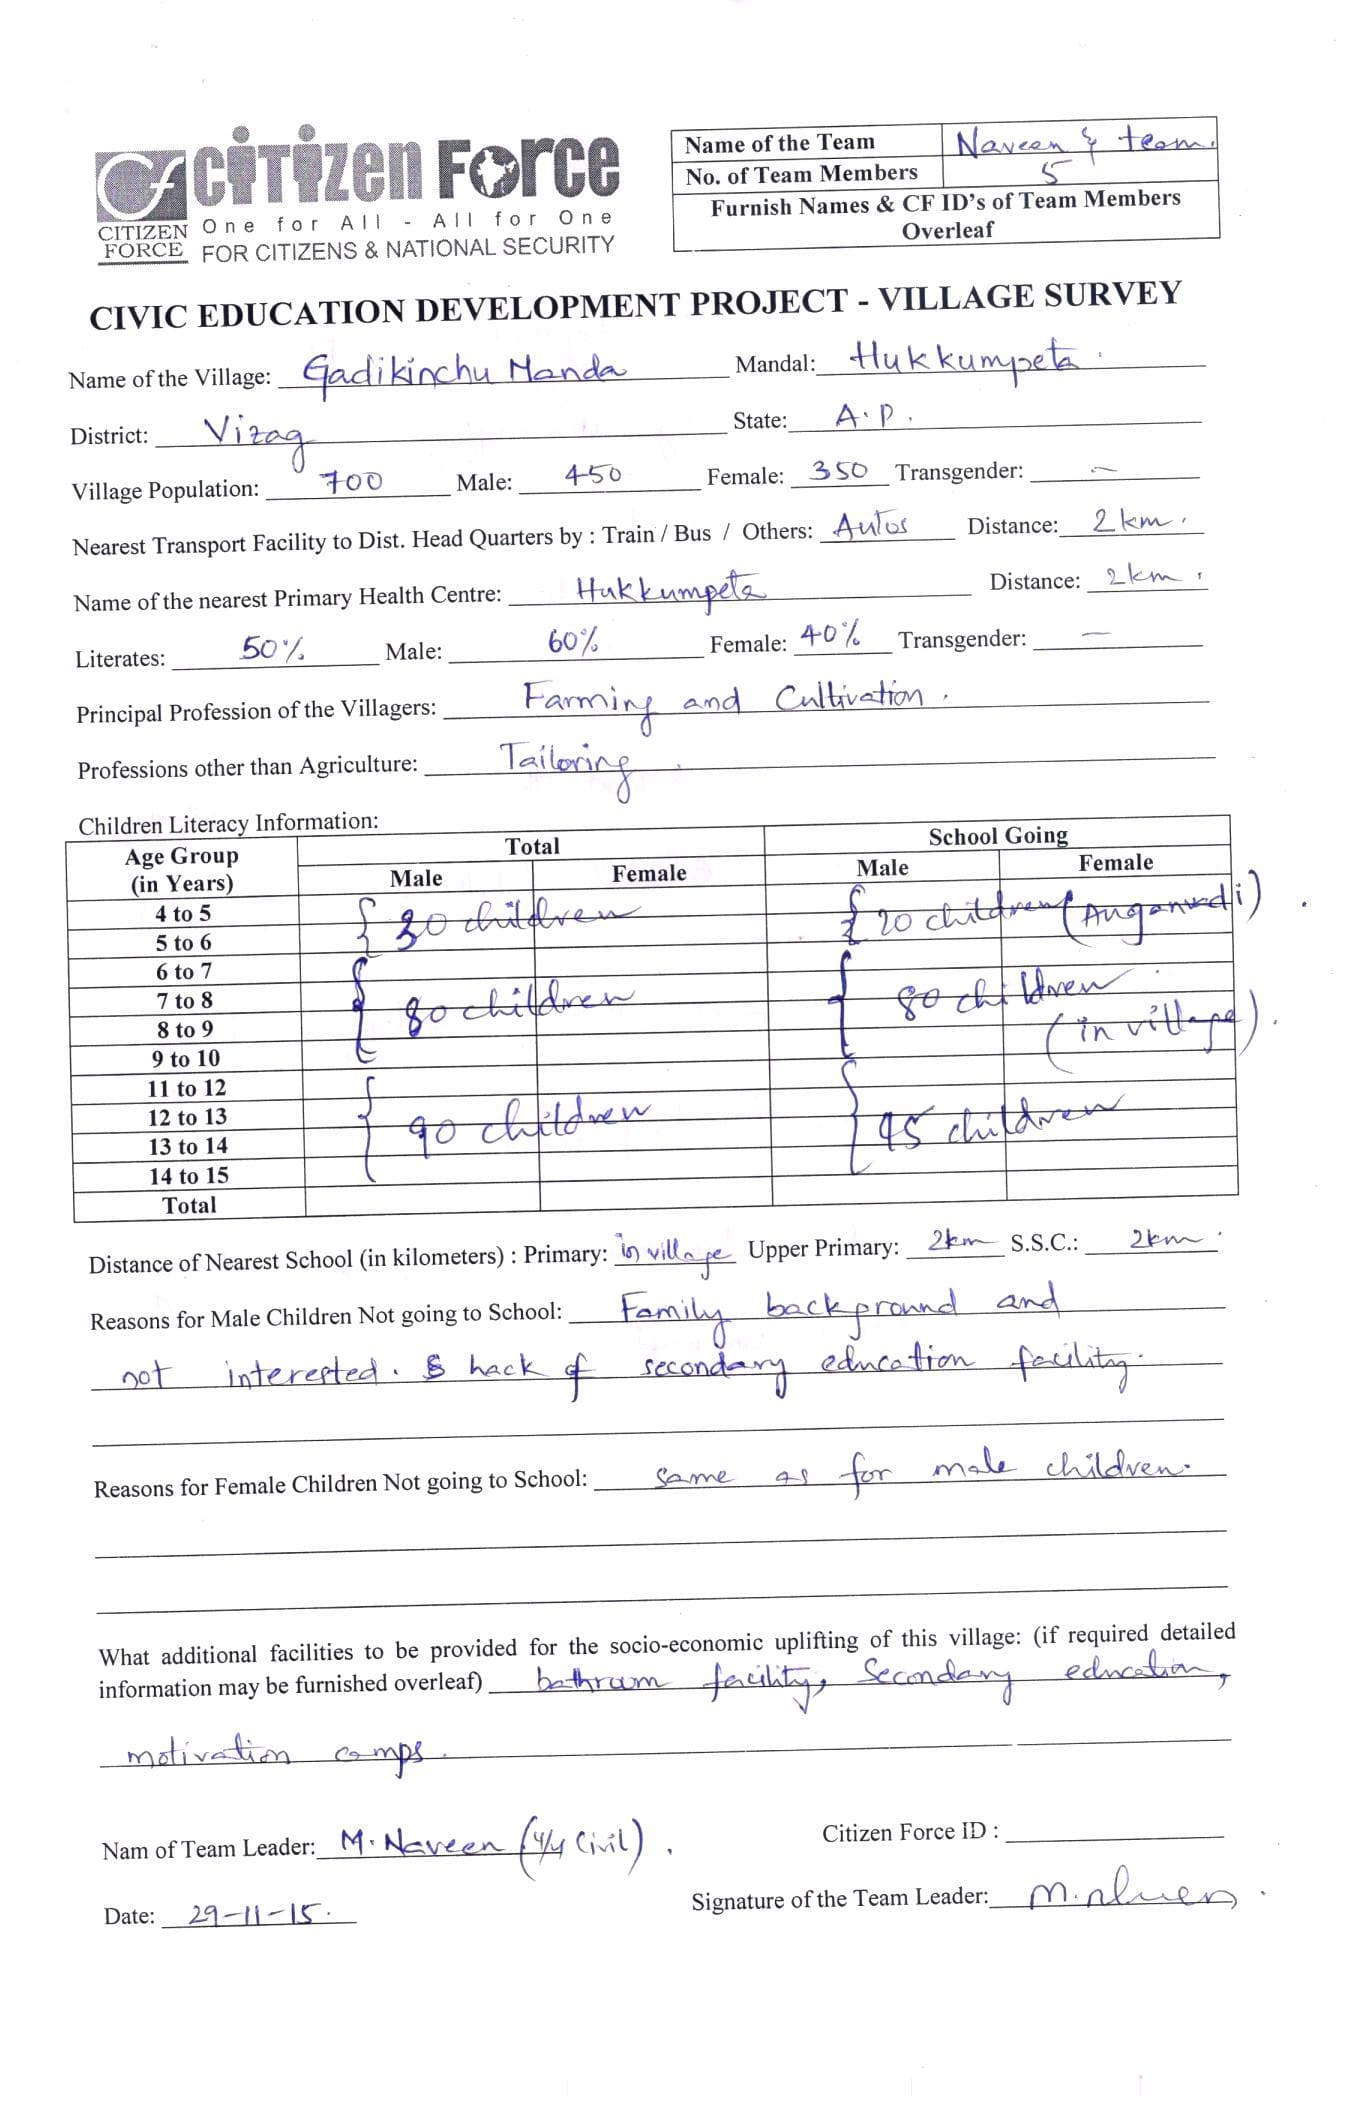 cf CiTiZen Force
CITIZEN FORCE
One for All - All for One
FOR CITIZENS & NATIONAL SECURITY
Name of the Team Naveen & team.
No. of Team Members 5
Furnish Names & CF ID's of Team Members
Overleaf
CIVIC EDUCATION DEVELOPMENT PROJECT - VILLAGE SURVEY
Name of the Village: Gadikinchu Manda Mandal: Hukkumpeta.
District: Vizag State: A.P.
Village Population: 700 Male: 450 Female: 350 Transgender: —
Nearest Transport Facility to Dist. Head Quarters by : Train / Bus / Others: Autos Distance: 2 km.
Name of the nearest Primary Health Centre: Hukkumpeta Distance: 2km.
Literates: 50% Male: 60% Female: 40% Transgender: —
Principal Profession of the Villagers: Farming and Cultivation.
Professions other than Agriculture: Tailoring.
Children Literacy Information:
Age Group (in Years) Total School Going
Male Female Male Female
4 to 5 { 30 children { 20 children (Anganvadi).
5 to 6
6 to 7
7 to 8 { 80 children { 80 children
8 to 9 (in village).
9 to 10
11 to 12
12 to 13 { 90 children { 45 children
13 to 14
14 to 15
Total
Distance of Nearest School (in kilometers) : Primary: in village Upper Primary: 2km S.S.C.: 2km.
Reasons for Male Children Not going to School: Family background and
not interested. & lack of secondary education facility.
Reasons for Female Children Not going to School: same as for male children.
What additional facilities to be provided for the socio-economic uplifting of this village: (if required detailed
information may be furnished overleaf) bathroom facility, Secondary education,
motivation camps.
Nam of Team Leader: M. Naveen (4/4 Civil). Citizen Force ID :
Date: 29-11-15. Signature of the Team Leader: